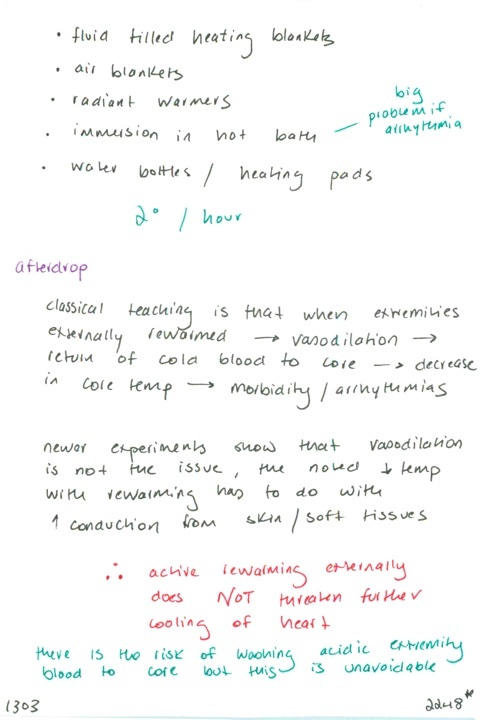 • fluid filled heating blankets
• air blankets
• radiant warmers
• immersion in hot bath — big problem if arrhythmia
• water bottles / heating pads
2° / hour
afterdrop
classical teaching is that when extremities
externally rewarmed → vasodilation →
return of cold blood to core → decrease
in core temp → morbidity / arrhythmias
newer experiments show that vasodilation
is not the issue, the noted ↓ temp
with rewarming has to do with
↑ conduction from skin / soft tissues
∴ active rewarming externally
does NOT threaten further
cooling of heart
there is the risk of washing acidic extremity
blood to core but this is unavoidable
1303
2248